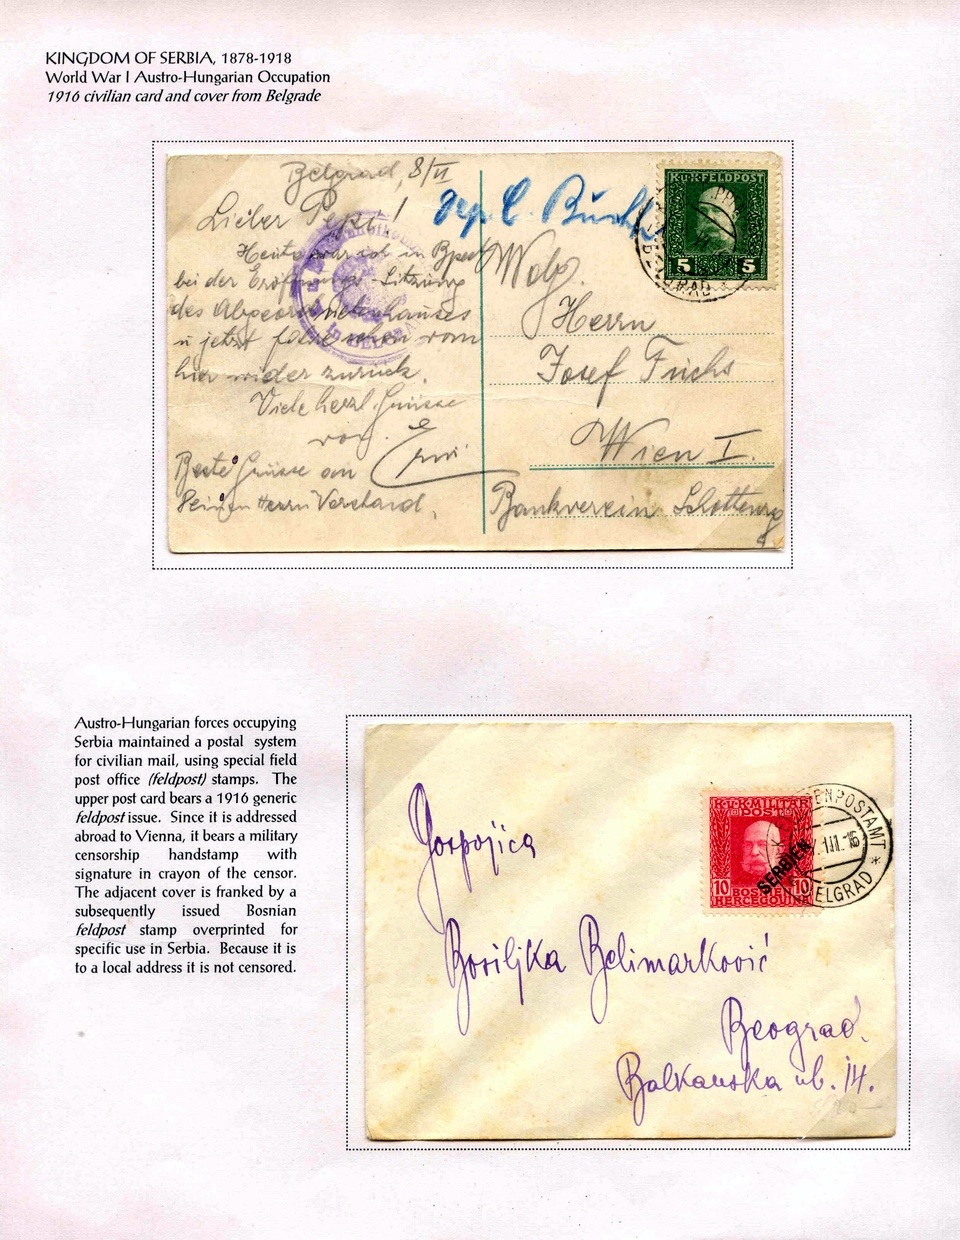 KINGDOM OF SERBIA, 1878-1918
World War I Austro-Hungarian Occupation
1916 civilian card and cover from Belgrade
Belgrad, 8/VI
Lieber Pepi!
Heute war ich in Bpest
bei der Eröffnungs-Sitzung
des Abgeordnetenhauses
u jetzt fahre schon vom
hier wieder zurück.
Viele herzl. Grüsse
von
Beste Grüsse an
Deinen Herrn Vorstand.
K.u.K.FELDPOST
5 5
Wolg.
Herrn
Josef Fuchs
Wien I.
Bankverein Schotteng
8.
Austro-Hungarian forces occupying
Serbia maintained a postal system
for civilian mail, using special field
post office (feldpost) stamps. The
upper post card bears a 1916 generic
feldpost issue. Since it is addressed
abroad to Vienna, it bears a military
censorship handstamp with
signature in crayon of the censor.
The adjacent cover is franked by a
subsequently issued Bosnian
feldpost stamp overprinted for
specific use in Serbia. Because it is
to a local address it is not censored.
K.u.K.MILITAR
POST
SERBIEN
10 10
BOSNIEN
HERCEGOVINA
ENPOSTAMT
BELGRAD *
Gospojica
Bosiljka Belimarković
Beograd.
Balkanska ul. 14.